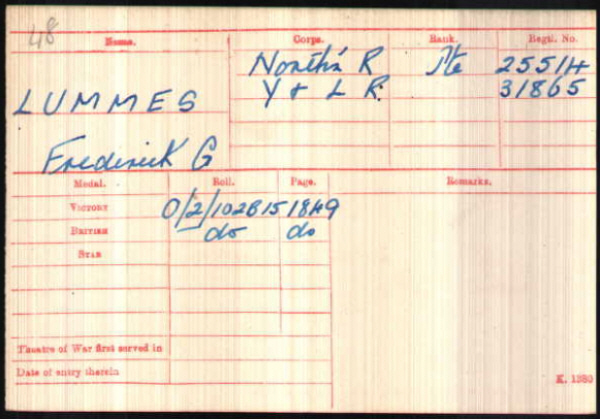 48
Name. Corps. Rank. Regtl. No.
North'n R Pte 25514
Y & L R. 31865
LUMMES
Frederick G
Medal. Roll. Page. Remarks.
VICTORY O/2/102B15 1849
BRITISH do do
STAR
Theatre of War first served in
Date of entry therein
K. 1380